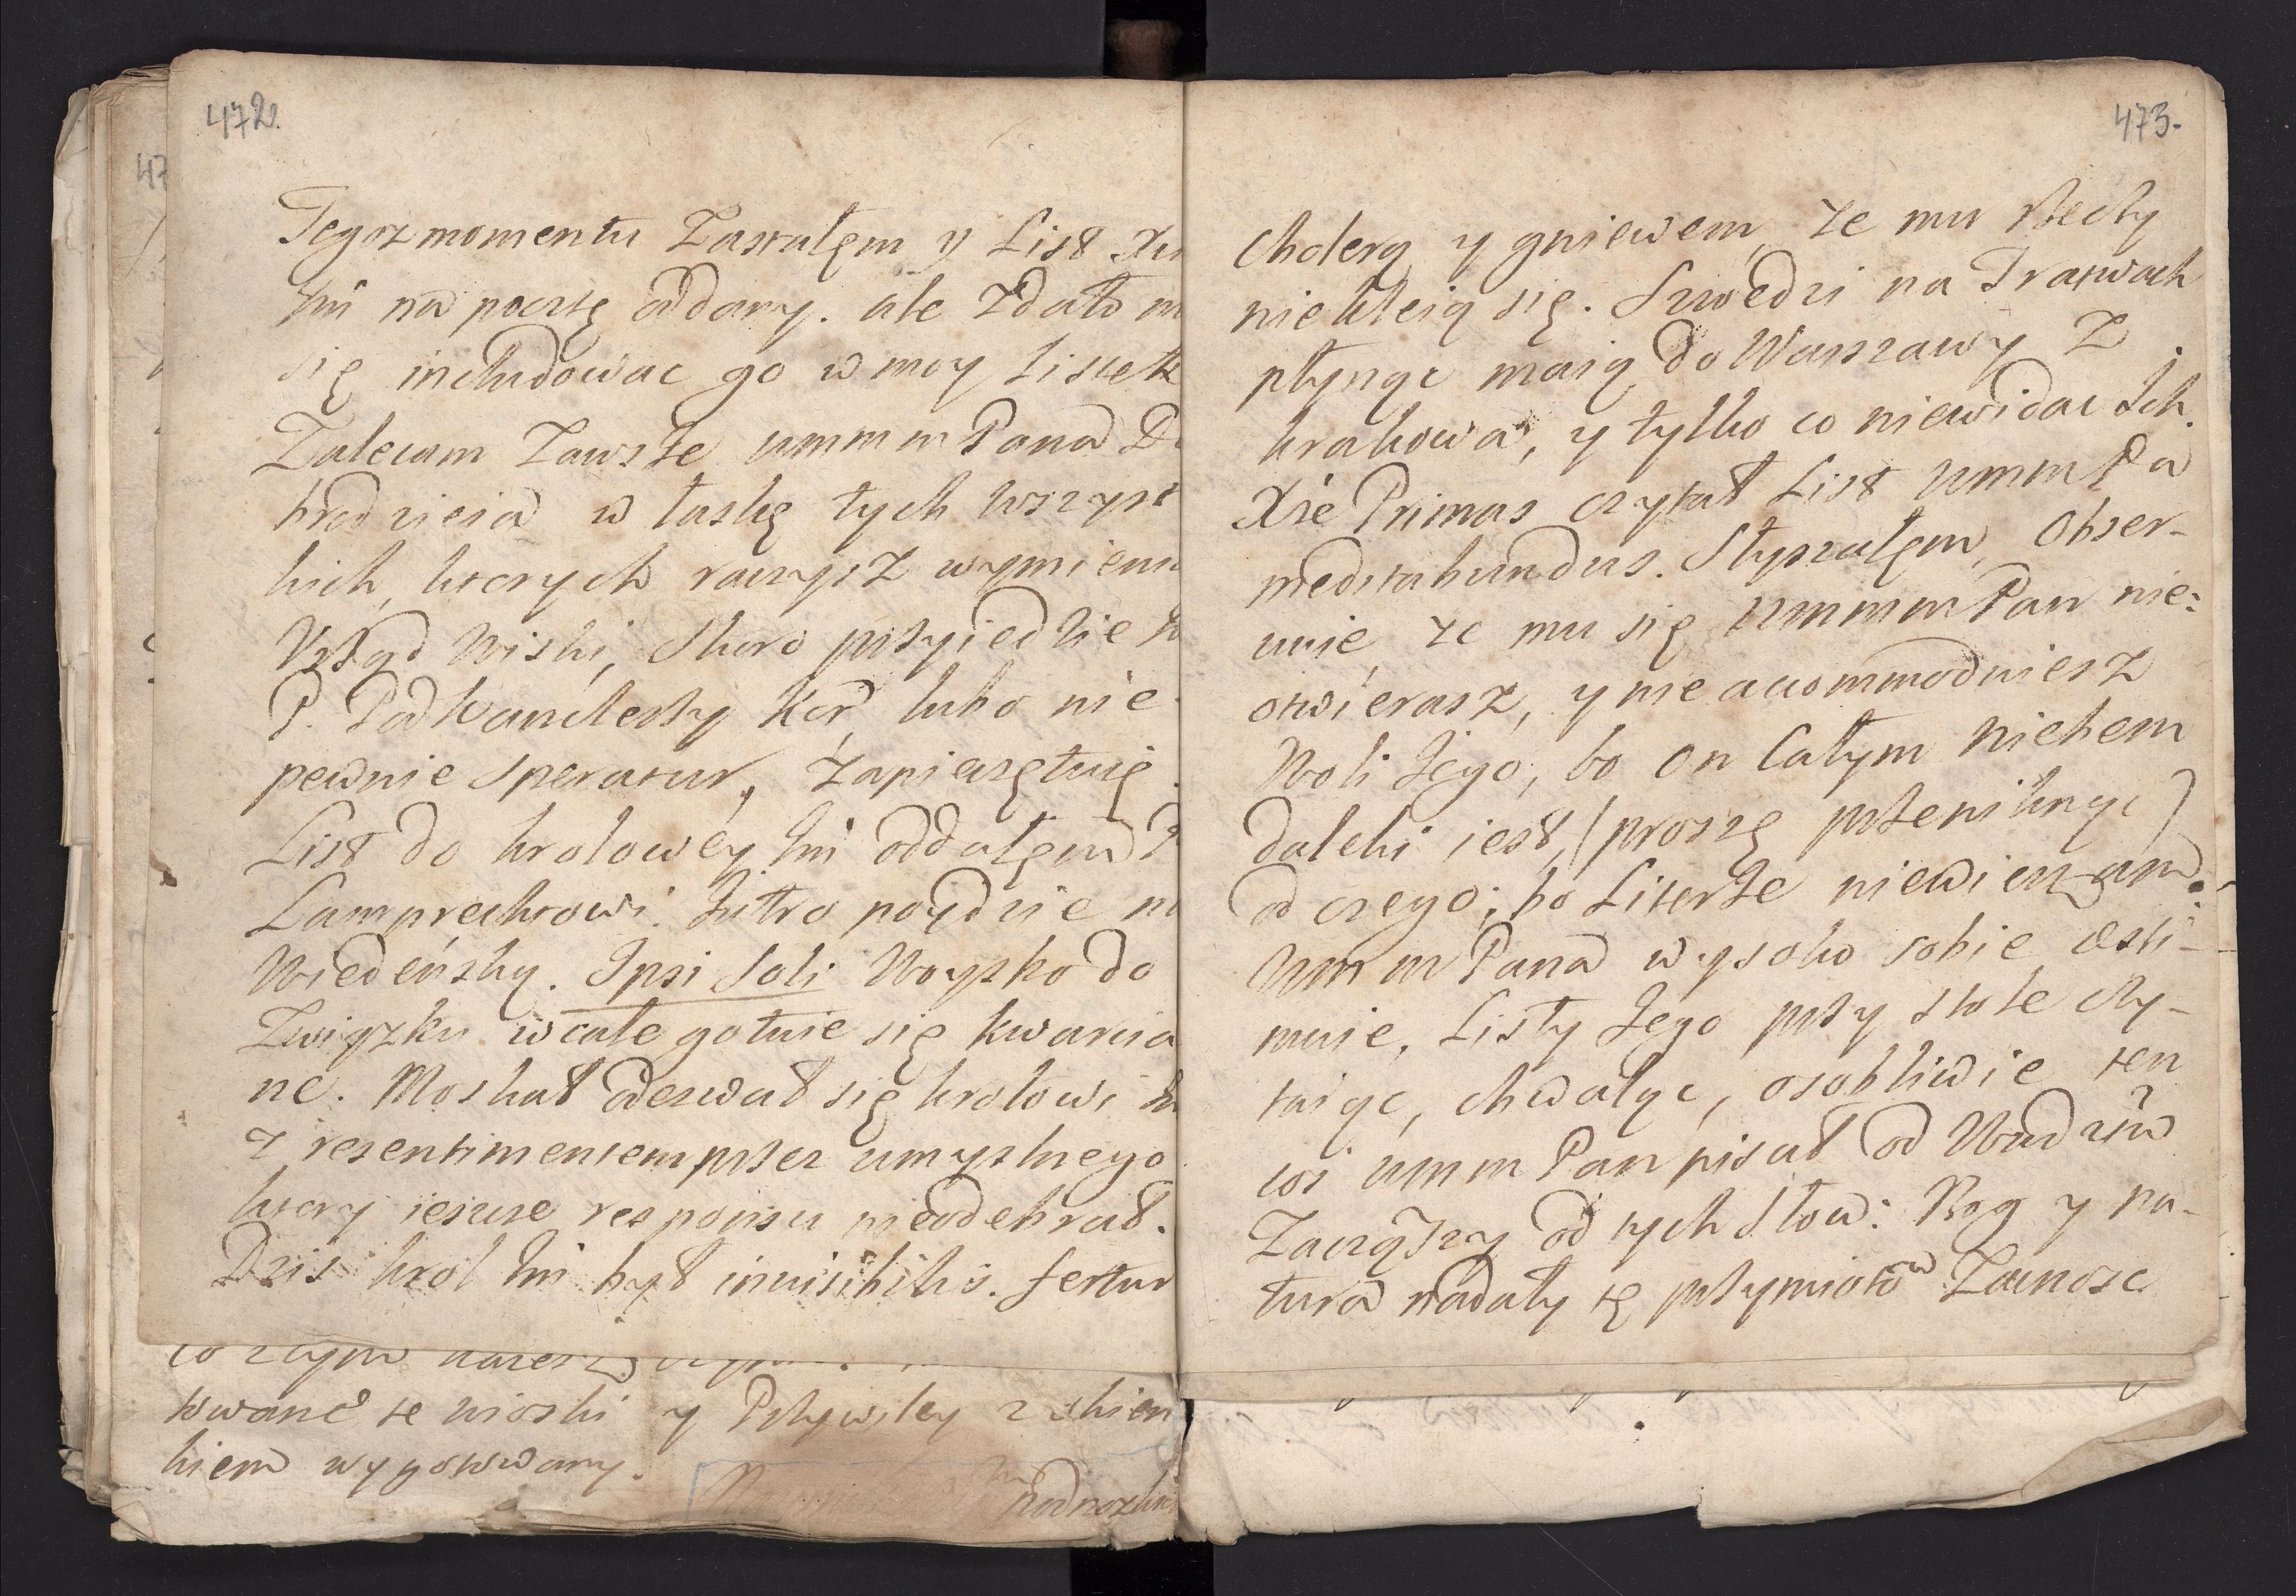 472.
Tegoz momentu Zastałęm y List Xu
Jmi na pocztę oddany. ale zdało m
się includowac go w moy Listek
Zalecam Zawsze ummm Pana D
brodzieia w łaskę tych wszyst
kich, ktorych raczysz wymieni
Urząd Wiski, skoro przyiedzie
P. Podkanclerzy Kor, lubo nie
pewnie speratur, Zapieczętuię
List do krolowey Jmi oddałęm
Lamprechtowi. Jutro poydzie n
Wiedeńską. Ipsi Soli Woysko do
Związku wcale gotuie się kwarcia
ne. Moskal odezwał się krolowi
z resentimentem przez umyslnego
ktory ieszcze responsu nieodebrał.
Dzis krol Jmi był inuisibilis. fertur
47
kowane te wioski y Przywiley z okien
kiem wygotowany.
473.
Cholerą y gniewem, ze mu rzeczy
niekleią się. Szwedzi na Tratwach
płynąc maią do Warszawy Z
krakowa, y tylko co niewidac Ich.
Xże Primas czytał List Ummm Pa
meditabundus. Słyszałęm, obser-
uuie, ze mu się Ummm Pan nie-
otwierasz, y nie accommoduiesz
Woli Jego, bo on Całym Niebem
daleki iest, (proszę przeniknąc)
od czego; bo Literze niewierzam.
Umm Pana wysoko sobie esti-
muie, Listy Jego przy stole czy-
taiąc, chwaląc, osobliwie ten
cos Umm Pan pisał od Wudzin
Zacząwszy od tych Słow: Bog y na-
tura nadały tę przymiotow Zacnosc